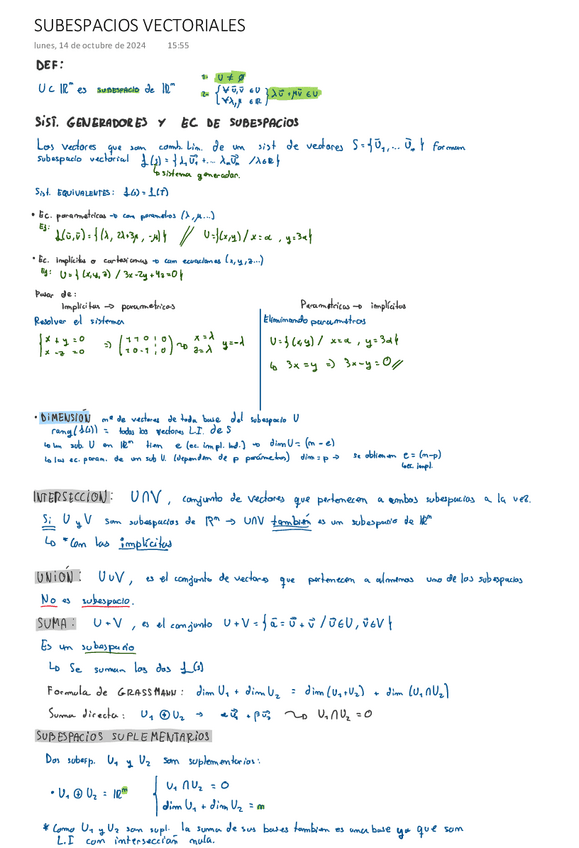 SUBESPACIOS VECTORIALES
lunes, 14 de octubre de 2024 15:55
DEF:
U ⊂ ℝᵐ es subespacio de ℝᵐ
1: U ≠ ∅
2: { ∀ ū,v̄ ∈ U
∀ λ,μ ∈ ℝ } λū + μv̄ ∈ U
SIST. GENERADORES Y EC DE SUBESPACIOS
Los vectores que son comb. Lin. de un sist de vectores S={ū₁,... ūₙ} forman
subespacio vectorial L(s) = {λ₁ū₁ +... λₙūₙ /λ∈ℝ}
↳ sistema generador.
Sist. EQUIVALENTES: L(s) = L(T)
• Ec. parametricas → con parametros (λ, μ...)
Ej: L(ū,v̄) = {(λ, 2λ+3μ, -μ)} // U={(x,y) / x=α , y=3α}
• Ec. Implicitas o cartesianas → con ecuaciones (x,y,z...)
Ej: U = {(x,y,z) / 3x-2y+4z=0}
Pasar de:
Implicitas → parametricas
Resolver el sistema
{ x + y = 0
x - z = 0 ⇒ ( 1 1 0 | 0
1 0 -1 | 0 ) → x=λ
z=λ y=-λ
Parametricas → implicitas
Eliminando parametros
U = {(x,y) / x=α , y=3α}
↳ 3x = y ⇒ 3x-y=0 //
• DIMENSIÓN nº de vectores de toda base del subespacio U
rang(L(s)) = todos los vectores L.I. de S
↳ Un sub. U en ℝᵐ tien e (ec. impl. Ind.) → dim U = (m-e)
↳ Las ec. param. de un sub U. (dependen de p parámetros) dim=p → se obtienen e = (m-p)
ec. impl.
INTERSECCION: U∩V, conjunto de vectores que pertenecen a ambos subespacios a la vez.
Si U y V son subespacios de ℝᵐ → U∩V también es un subespacio de ℝᵐ
↳ *Con las implícitas
UNIÓN: U∪V, es el conjunto de vectores que pertenecen a almenos uno de los subespacios
No es subespacio.
SUMA: U+V, es el conjunto U+V = {ā = ū + v̄ / ū∈U, v̄∈V}
Es un subespacio
↳ Se suman los dos L(s)
Formula de GRASSMANN: dim U₁ + dim U₂ = dim(U₁+U₂) + dim (U₁∩U₂)
Suma directa: U₁ ⊕ U₂ → U₁∩U₂ = 0
SUBESPACIOS SUPLEMENTARIOS
Dos subesp. U₁ y U₂ son suplementarios:
• U₁ ⊕ U₂ = ℝᵐ { U₁ ∩ U₂ = 0
dim U₁ + dim U₂ = m
* Como U₁ y U₂ son supl. la suma de sus bases tambien es una base ya que son
L.I con interseccion nula.